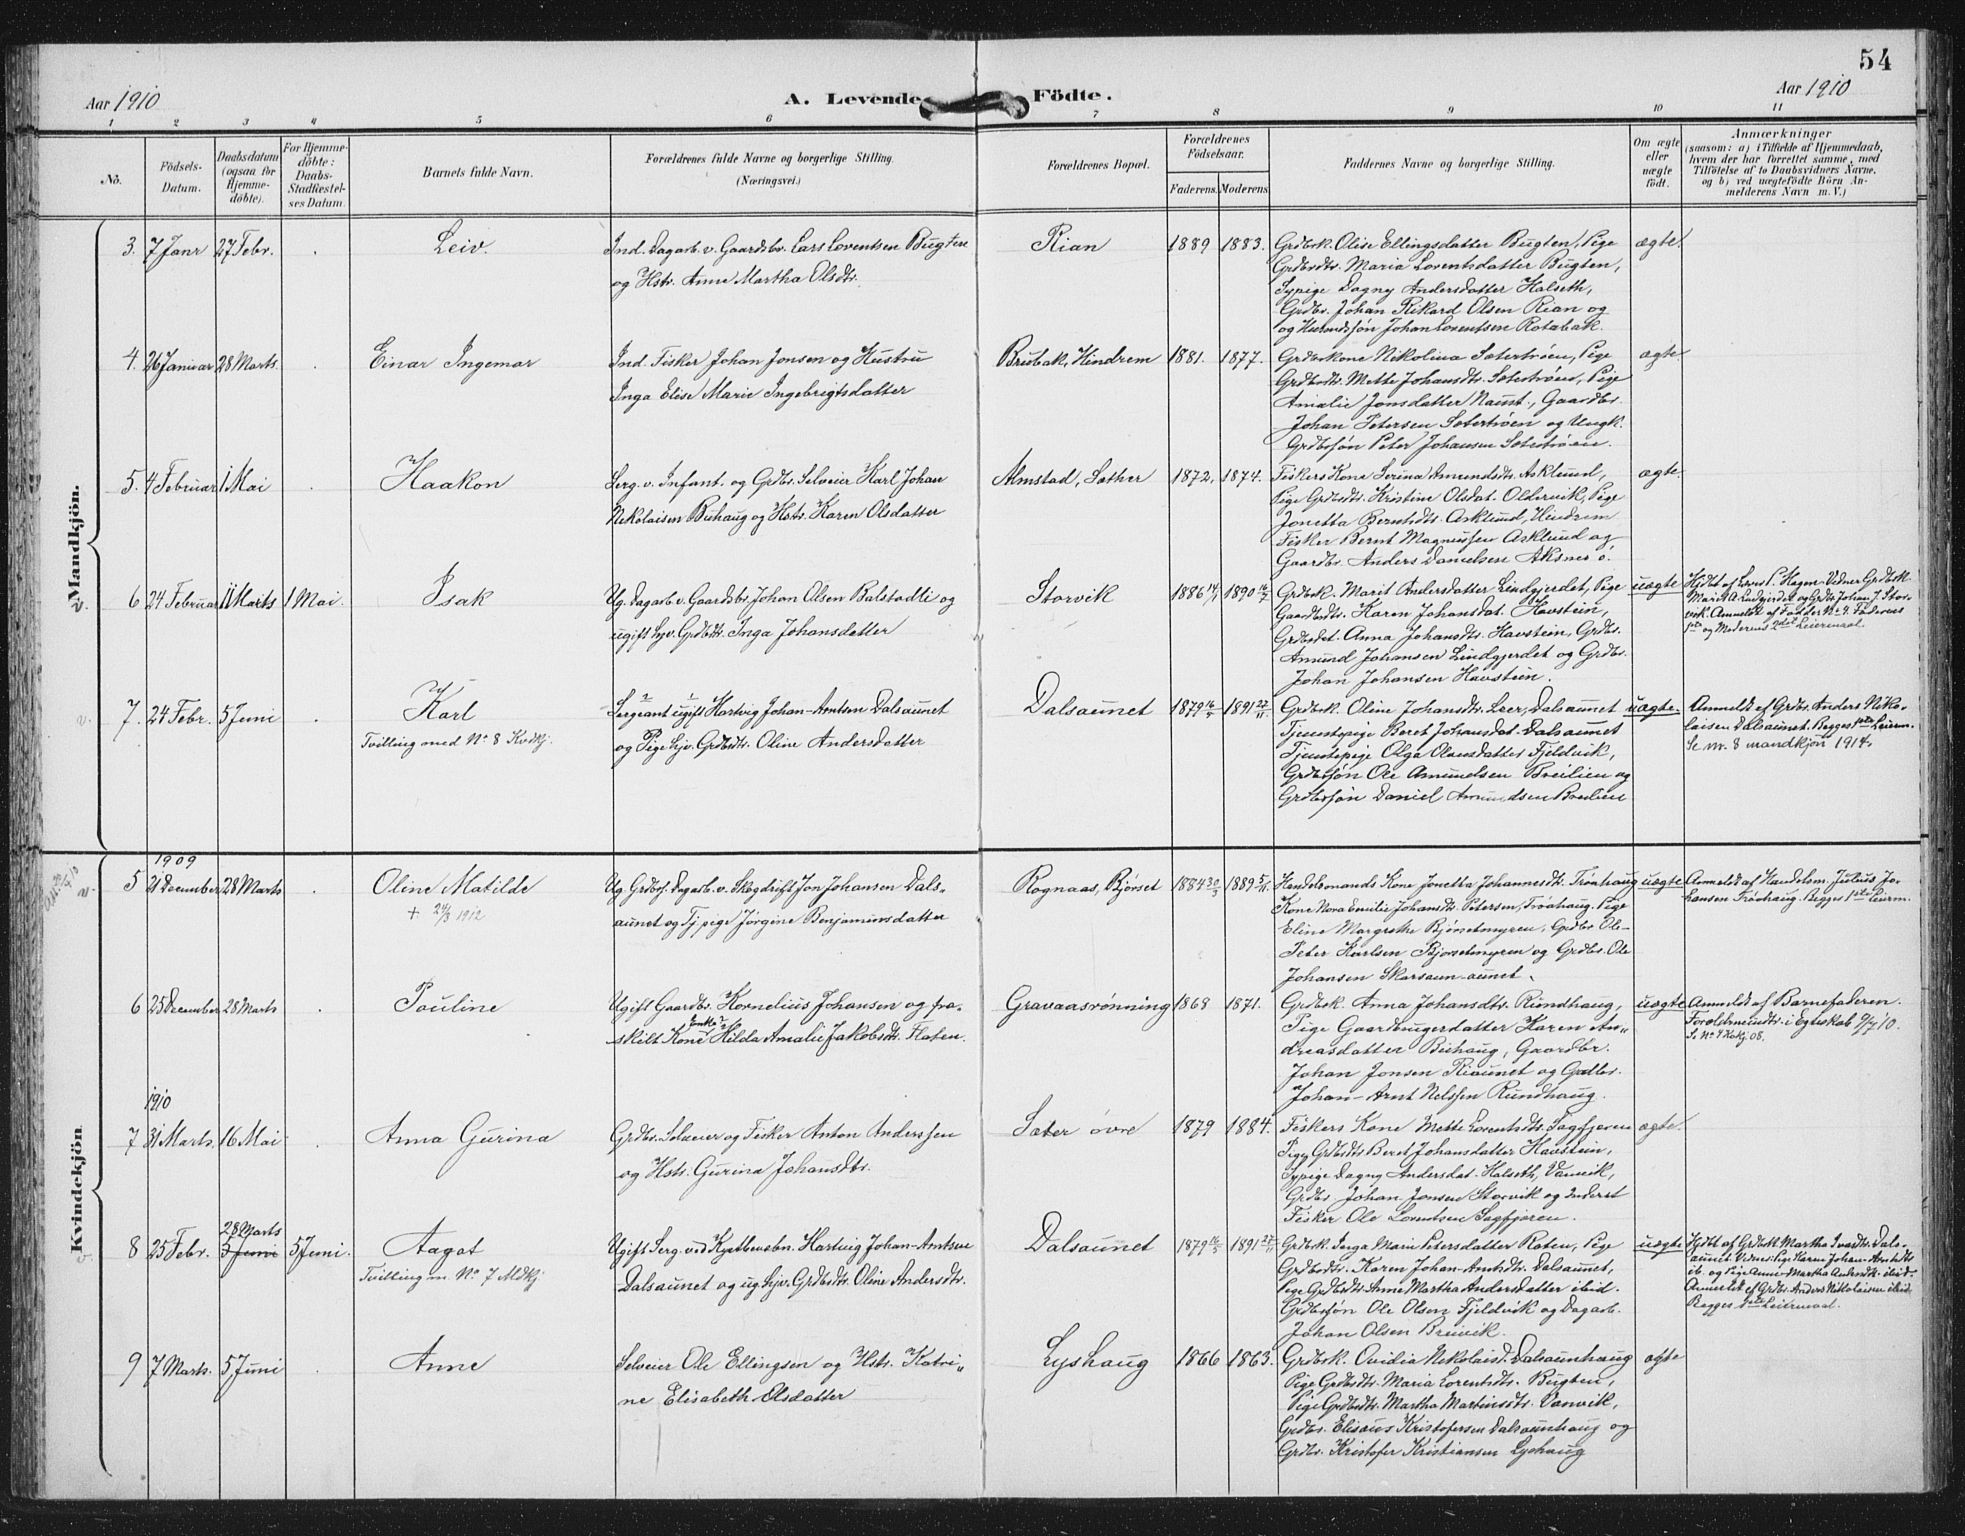 54
Aar 1910
A. Levende Födte.
Aar 1910
1 2 3 4 5 6 7 8 9 10 11
No.
Födsels-
Datum.
Daabsdatum
(ogsaa for
Hjemme-
döbte).
For Hjemme-
döbte:
Daabs-
Stadfæstel-
ses Datum.
Barnets fulde Navn.
Forældrenes fulde Navne og borgerlige Stilling.
(Næringsvei.)
Forældrenes Bopæl.
Forældrenes
Födselsaar.
Faderens. Moderens
Faddernes Navne og borgerlige Stilling.
Om ægte
eller
uægte
födt.
Anmærkninger
(saasom: a) i Tilfælde af Hjemmedaab,
hvem der har forrettet samme, med
Tilföielse af to Daabsvidners Navne,
og b) ved uægtefödte Börn An-
melderens Navn m. V.)
Mandkjön.
3. 7 Janr 27 Febr. Leiv.
Ind. Dagarb. v. Gaardsbr. Lars Lorentsen Bugten
og Hstr. Anne Martha Olsdtr.
Rian 1889 1883.
Grdbrk. Olise Ellingsdatter Bugten, Pige
Grdbrdtr. Maria Lorentsdatter Bugten,
Sypige Dagny Andersdatter Halseth,
Grdbr. Johan Rikard Olsen Rian og
og Johan Lorentsen Rotabak.
ægte.
4. 26 Januar 28 Marts. Einar Ingemar
Ind. Fisker Johan Jonsen og Hustru
Inga Elise Marie Ingebrigtsdatter
Brubak, Hindrem 1881. 1877.
Grdbrkone Nikolina Sætertrøen, Pige
Grdbrdtr. Mette Johansdtr. Sætertrøen, Pige
Amalie Jonsdatter Naust, Gaardbr.
Johan Petersen Sætertrøen og Ungk.
Grdbrsøn Peter Johansen Sætertrøen.
ægte.
5. 4 Februar 1 Mai Haakon
Serg. v. Infant. og Grdbr. Selveier Karl Johan
Nikolaisen Buhaug og Hstr. Karen Olsdatter
Almstad, Sæther 1872. 1874.
Fiskers Kone Serina Amundsdtr. Asklund,
Pige Grdbrdtr. Kristine Olsdat. Oldervik, Pige
Jonetta Berntsdtr. Asklund, Hindrem
Fisker Bernt Magnussen Asklund og
Gaardbr. Anders Danielsen Aksnes ø.
ægte.
6 24 Februar 11 Marts 1 Mai. Isak
Ug. Dagarb. v. Gaardsbr. Johan Olsen Balstadli og
ugift Hjv. Grdbrdtr. Inga Johansdatter
Storvik 1886 1890
Grdbrk. Marit Andersdatter Lindgjerdet, Pige
Gaardbrdtr. Karen Johansdat. Havstein,
Grdbrdat. Anna Johansdtr. Havstein, Grdbr.
Amund Johansen Lindgjerdet og Grdbr.
Johan Johansen Havstein.
uægte
og Moderens 2det Leiermaal.
7. 24 Febr. 5 Juni Karl
Tvilling med No 8 Kvdkj.
Sergeant ugift Hartvig Johan-Arntsen Dalsaunet
og Pige Hjv. Grdbrdtr. Oline Andersdatter
Dalsaunet 1879 16/5 1891 27/11
Grdbrk. Oline Johansdtr. Leer, Dalsaunet
Tjenestepige Beret Johansdat. Dalsaunet
Tjenstepige Olga Olausdatter Fjeldvik,
Grdbrsøn Ole Amundsen Breilien og
Grdbrsøn Daniel Amundsen Breilien
uægte.
Anmeldt af Grdbr. Anders Niko-
laisen Dalsaunet. Begges 1ste Leierm.
Se nr. 8 mandkjön 1914.
Kvindekjön
1909
5 21 December 28 Marts Oline Matilde
+ 24/3 1912
Ug. Grdbrs. Dagarb. v. Skogdrift Jon Johansen Dals-
aunet og Tj. pige Jørgine Benjaminsdatter
Rognaas, Bjørset 1884 30/3 1889 5/11.
Handelsmands Kone Jonetta Johannesdtr. Trøahaug
Kone Nora Emilie Johansdtr. Petersen, Trøahaug. Pige
Eline Margrethe Bjørsetmyren, Grdbr. Ole-
Peter Karlsen Bjørsetmyren og Grdbr. Ole
Johansen Skarsaunaunet.
uægte
Anmeldt af Handelsm. Julius Jo-
hansen Trøahaug. Begges 1ste Leierm.
6 25 December 28 Marts Pauline
Ugift Gaardbr. Kornelius Johansen og fra-
skilt Kone Enke? Hilda Amalie Jakobsdtr. Flaten.
Gravaasrønning 1868 1871.
Grdbrk. Anna Johansdtr. Rundhaug,
Pige Gaardbrugerdatter Karen An-
dreasdatter Buhaug, Gaardbr.
Johan Jonsen Riaunet og Grdbr.
Johan-Arnt Nelssen Rundhaug.
uægte
Anmeldt af Barnefaderen.
Forældrene indtr. i Egteskab 9/7 10.
Se No 4 Kvkj. 08.
1910
7 31 Marts. 16 Mai Anna Gurina
Grdbr. Selveier og Fisker Anton Anderssen
og Hstr. Gurina Johansdtr.
Sæter øvre 1879 1884.
Fiskers Kone Mette Lorentsdtr. Sagfjæren
Pige Grdbrdtr. Beret Johansdatter Havstein,
Sypige Dagny Andersdat. Halseth, Vanvik,
Grdbr. Johan Jonsen Storvik og Inderst
Fisker Ole Lorentsen Sagfjæren.
ægte.
8 25 Febr. 28 Marts 5 Juni 5 Juni. Aagot
Tvilling m. No 7 Mdkj.
Ugift Serg. ved Hartvig Johan-Arntsen
Dalsaunet og ug. Hjv. Grdbrdtr. Oline Andersdtr.
Dalsaunet 1879 16/5 1891 27/11
Grdbrk. Inga Marie Petersdatter Raten, Pige
Grdbrdtr. Karen Johan-Arntsdtr. Dalsaunet,
Pige Grdbrdtr. Anne Martha Andersdatter ibid.
Grdbrsøn Ole Olsen Fjeldvik og Dagarb.
Johan Olsen Breivik.
uægte
Hjdbt. af Grdbrk. Martha Ivarsdtr. Dals-
aunet. Vidner: Pige Karen Johan-Arntsdtr.
ib. og Pige Anne-Martha Andersdtr. ibid.
Anmeldt af Grdbr. Anders Nikolaisen ibid.
Begges 1ste Leiermaal.
9 7 Marts. 5 Juni Anne
Selveier Ole Ellingsen og Hstr. Katri-
ne Elisabeth Olsdatter
Lyshaug 1866 1863.
Grdbrk. Ovidia Nikolaisd. Dalsaunhaug
Pige Grdbrdtr. Maria Lorentsdtr. Bugten,
Pige Grdbrdtr. Martha Martinsdtr. Vanvik,
Grdbr. Elisæus Kristofersen Dalsaunhaug og
Grdbr. Kristofer Kristiansen Lyshaug
ægte